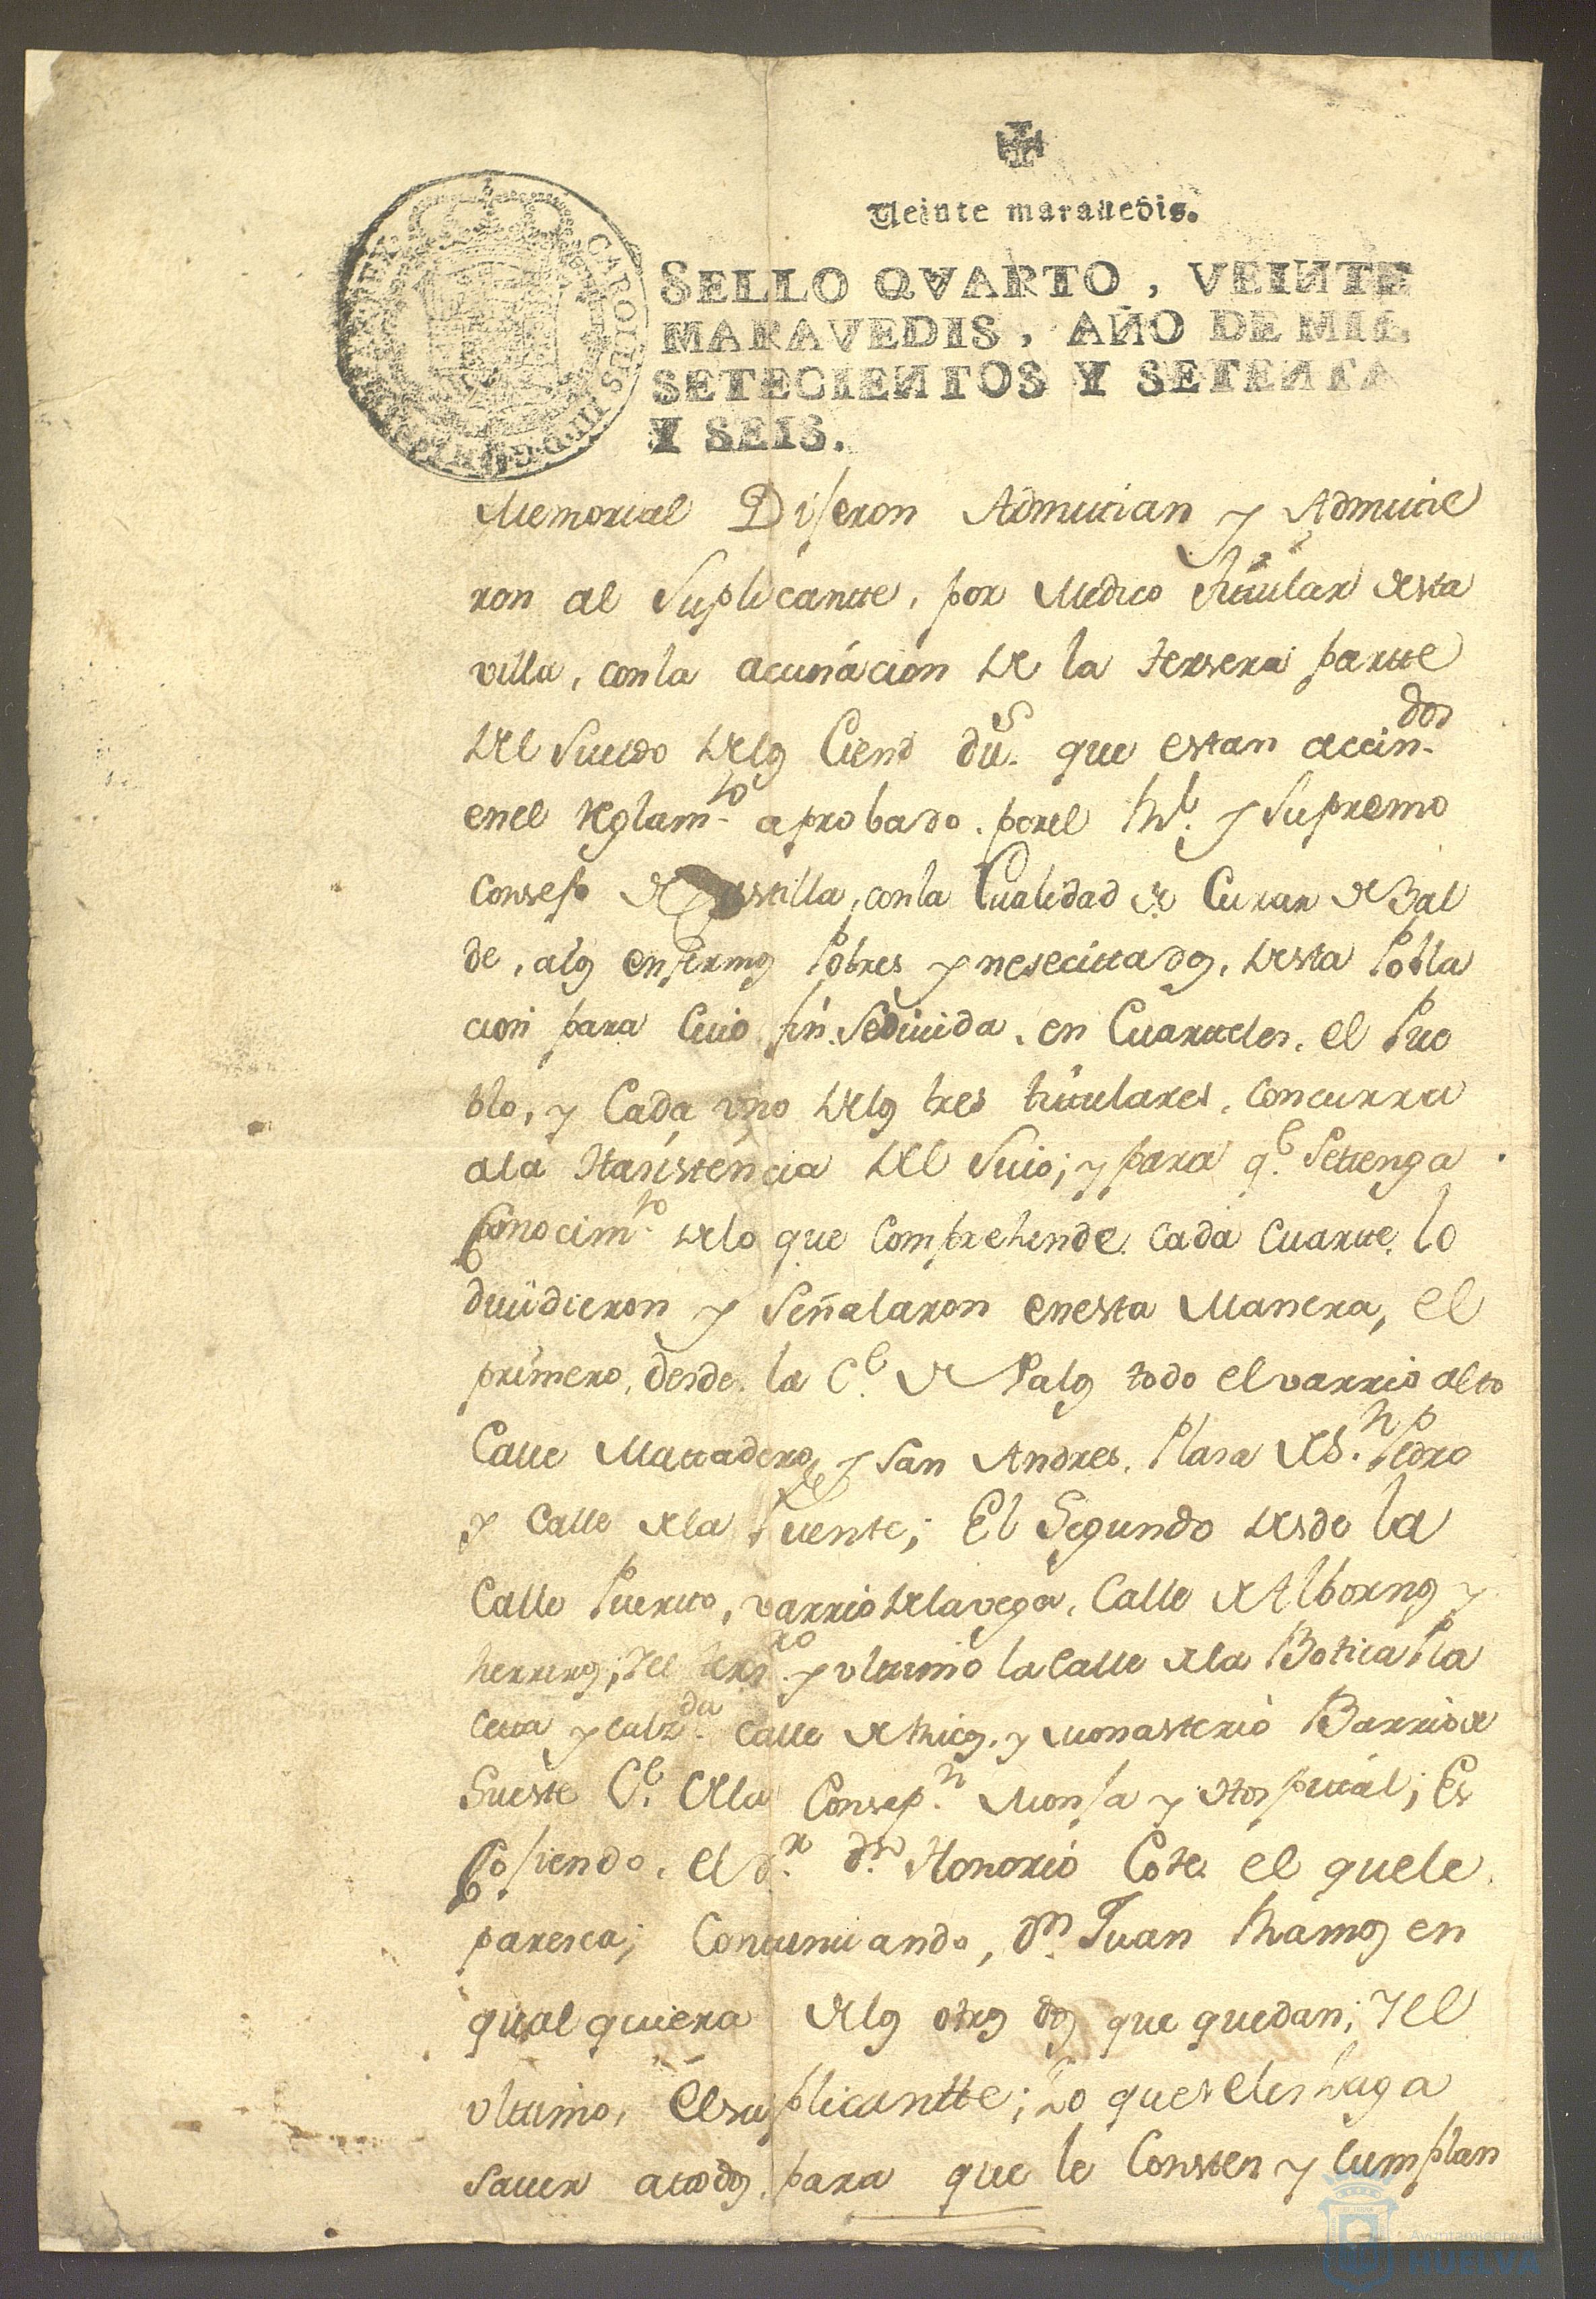 Veinte marauedis.
SELLO QVARTO, VEINTE
MARAVEDIS, AÑO DE MIL
SETECIENTOS Y SETENTA
Y SEIS.
CAROLUS III D.G.
Memorial Dijeron Admitian y Admitie
ron al Suplicantte, por Medico titular desta
villa, con la acignácion de la tersera partte
del sueldo delos Ciend du.s que estan accin.dos
en el Reglam.to aprobado por el R.l y Supremo
Consejo de Castilla, con la Cualidad de Curar de Bal
de, alos enfermos Pobres y nesecittados, desta Pobla
cion para Cuio fin Sediuida en Cuartteles el Pue
blo, y Cada vno delos tres tittulares, concurra
ala Hasistencia del Suio; y para q.e Settenga
Conocim.to delo que Comprehende cada Cuartte, lo
diuidieron y Señalaron enesta Manera, el
primero, desde la C.e de Palos todo el varrio alto
Calle Mattadero, y San Andres, Plasa de S.n Pedro
y Calle de la Fuente; El Segundo desde la
Calle Puertto, varrio de la vega, Calle de Albornos y
herreros; y el terz.ro y vltimo la Calle de la Botica Pla
cetta y Calz.da Calle de Ricos, y Monasterio Barrio de
Sueste C.e de la Consep.n Monja y Hospittal; Es
Cojiendo, el d.r d.n Honorio Cote el que le
paresca; Conttinuando, d.n Juan Ramos en
qualquiera de los otros dos que quedan; y el
vltimo, el suplicantte; Lo que se les haga
sauer a todos para que le Consten y Cumplan
Ayuntamiento de
HUELVA